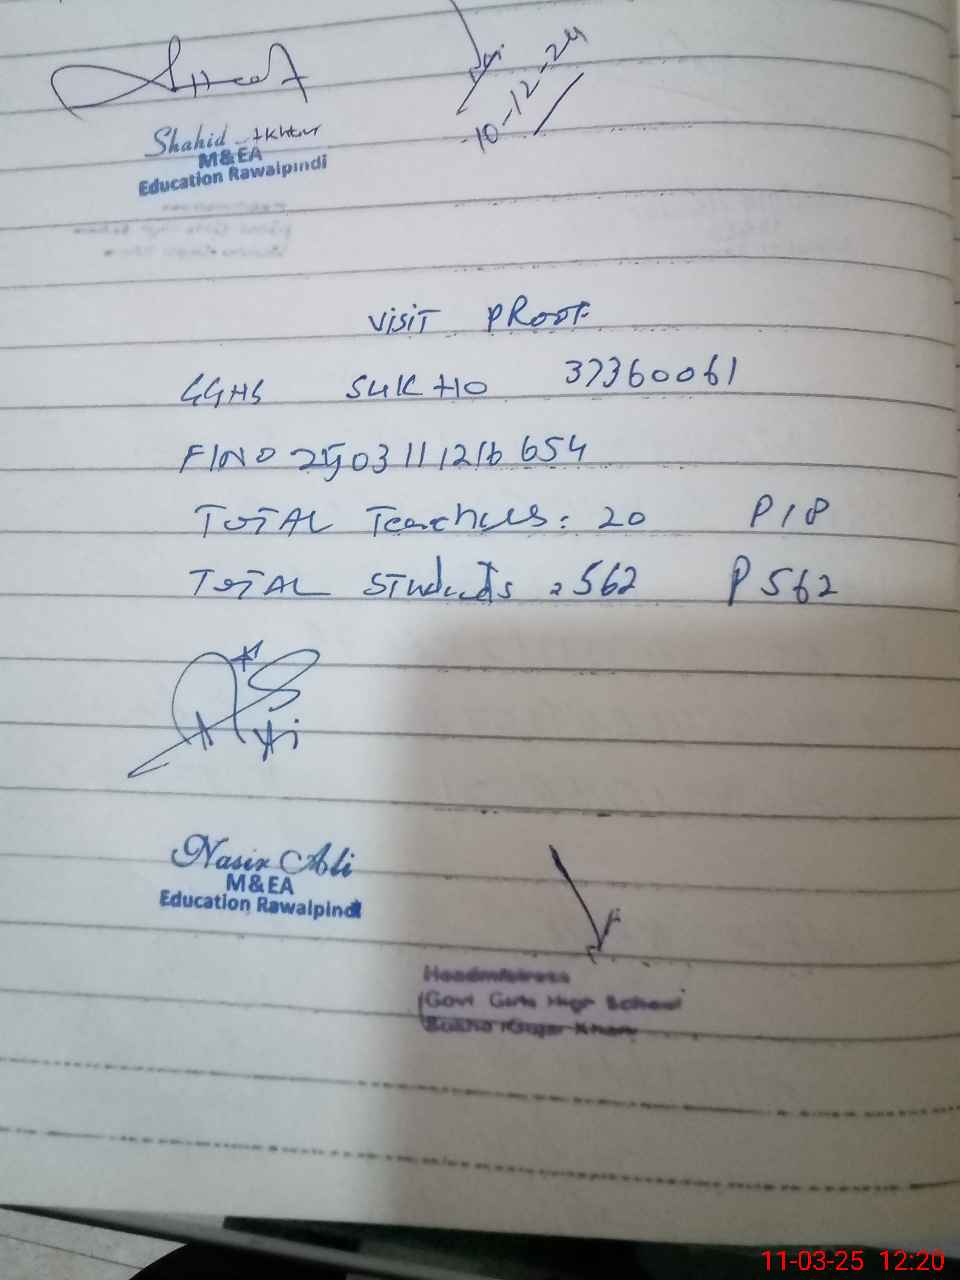 10-12-24
Shahid Akhtar
M&EA
Education Rawalpindi
VISIT PROOF
GGHS SUKHO 37360061
FINO 2503111216654
TOTAL Teachers: 20 P 18
TOTAL Students : 562 P 562
Nasir Ali
M&EA
Education Rawalpindi
Headmistress
Govt Girls High School
Sukho (Gujar Khan)
11-03-25 12:20